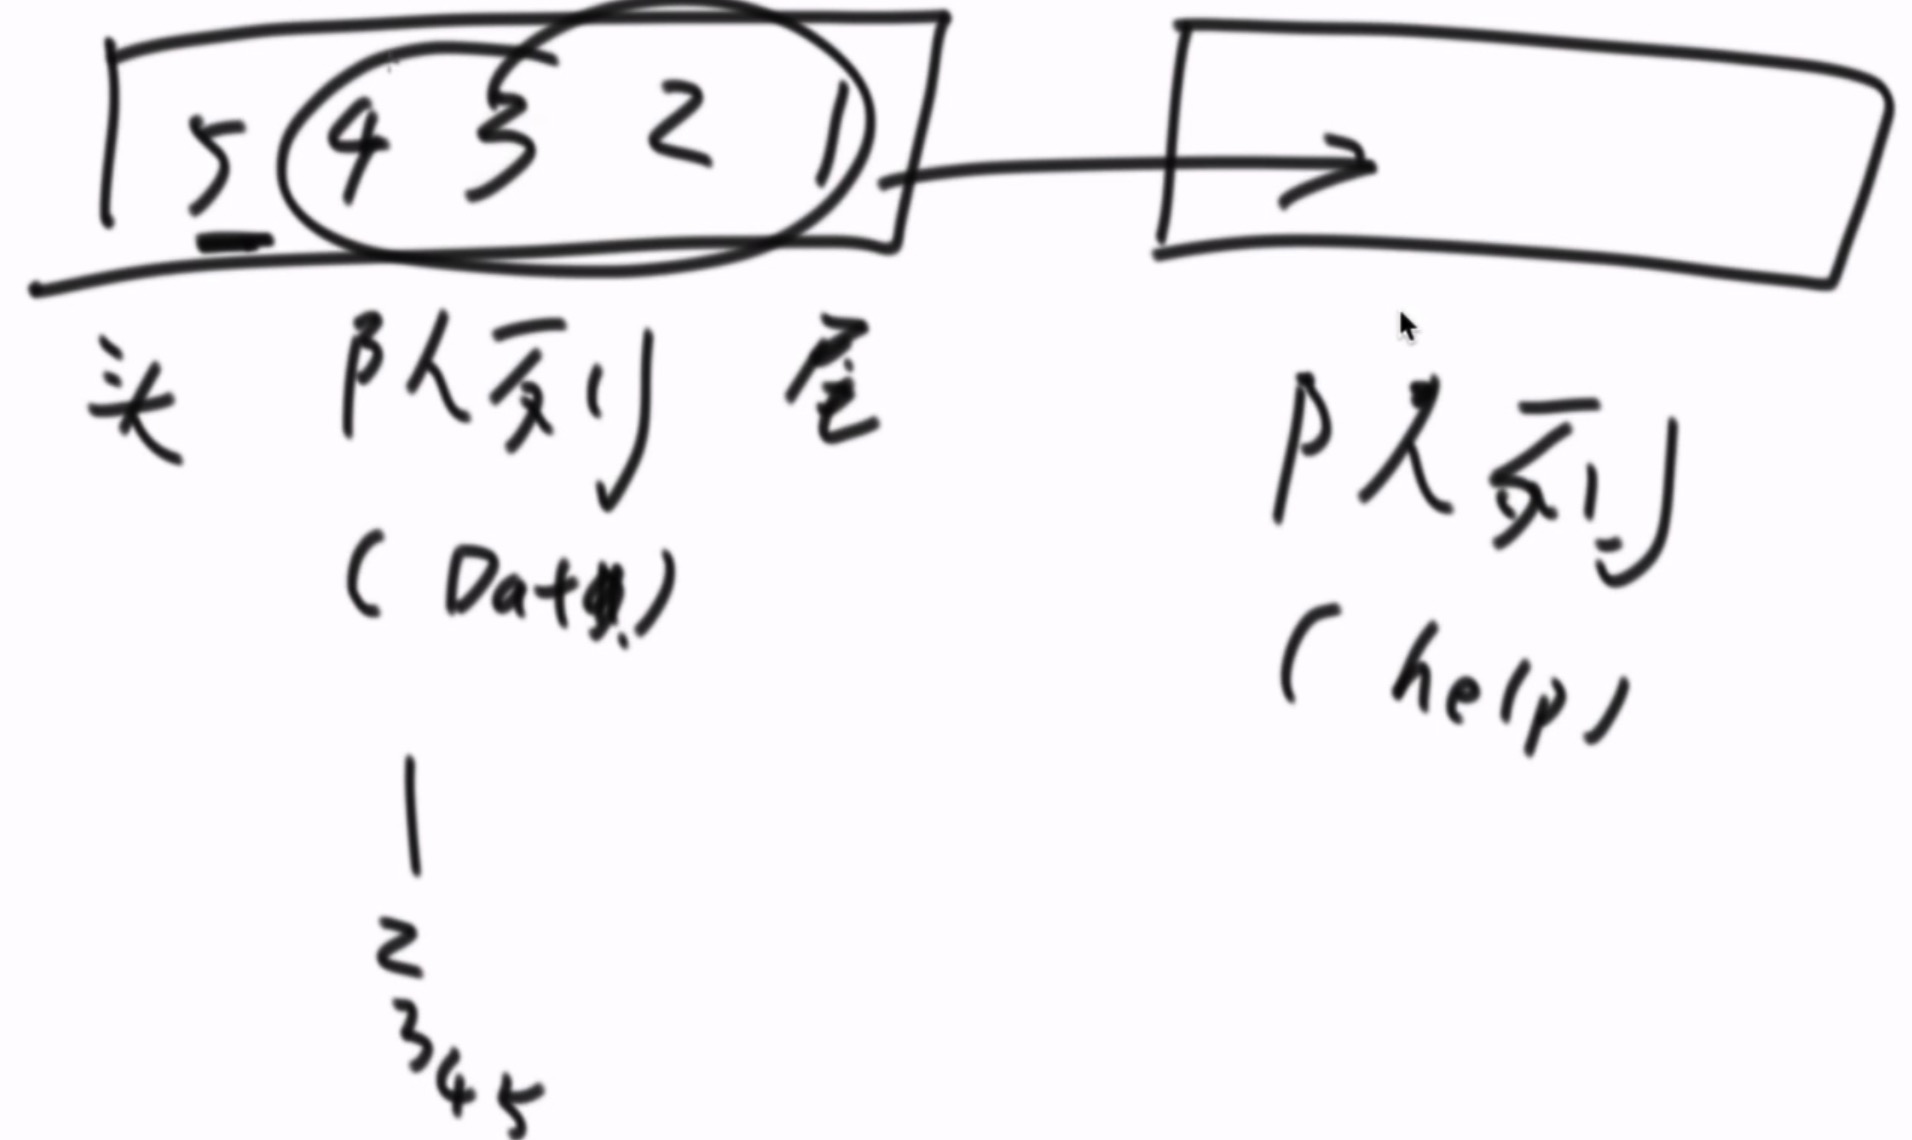 5 4 3 2 1
头 队列 尾
队列
(Data)
(help)
1
2
3
4
5